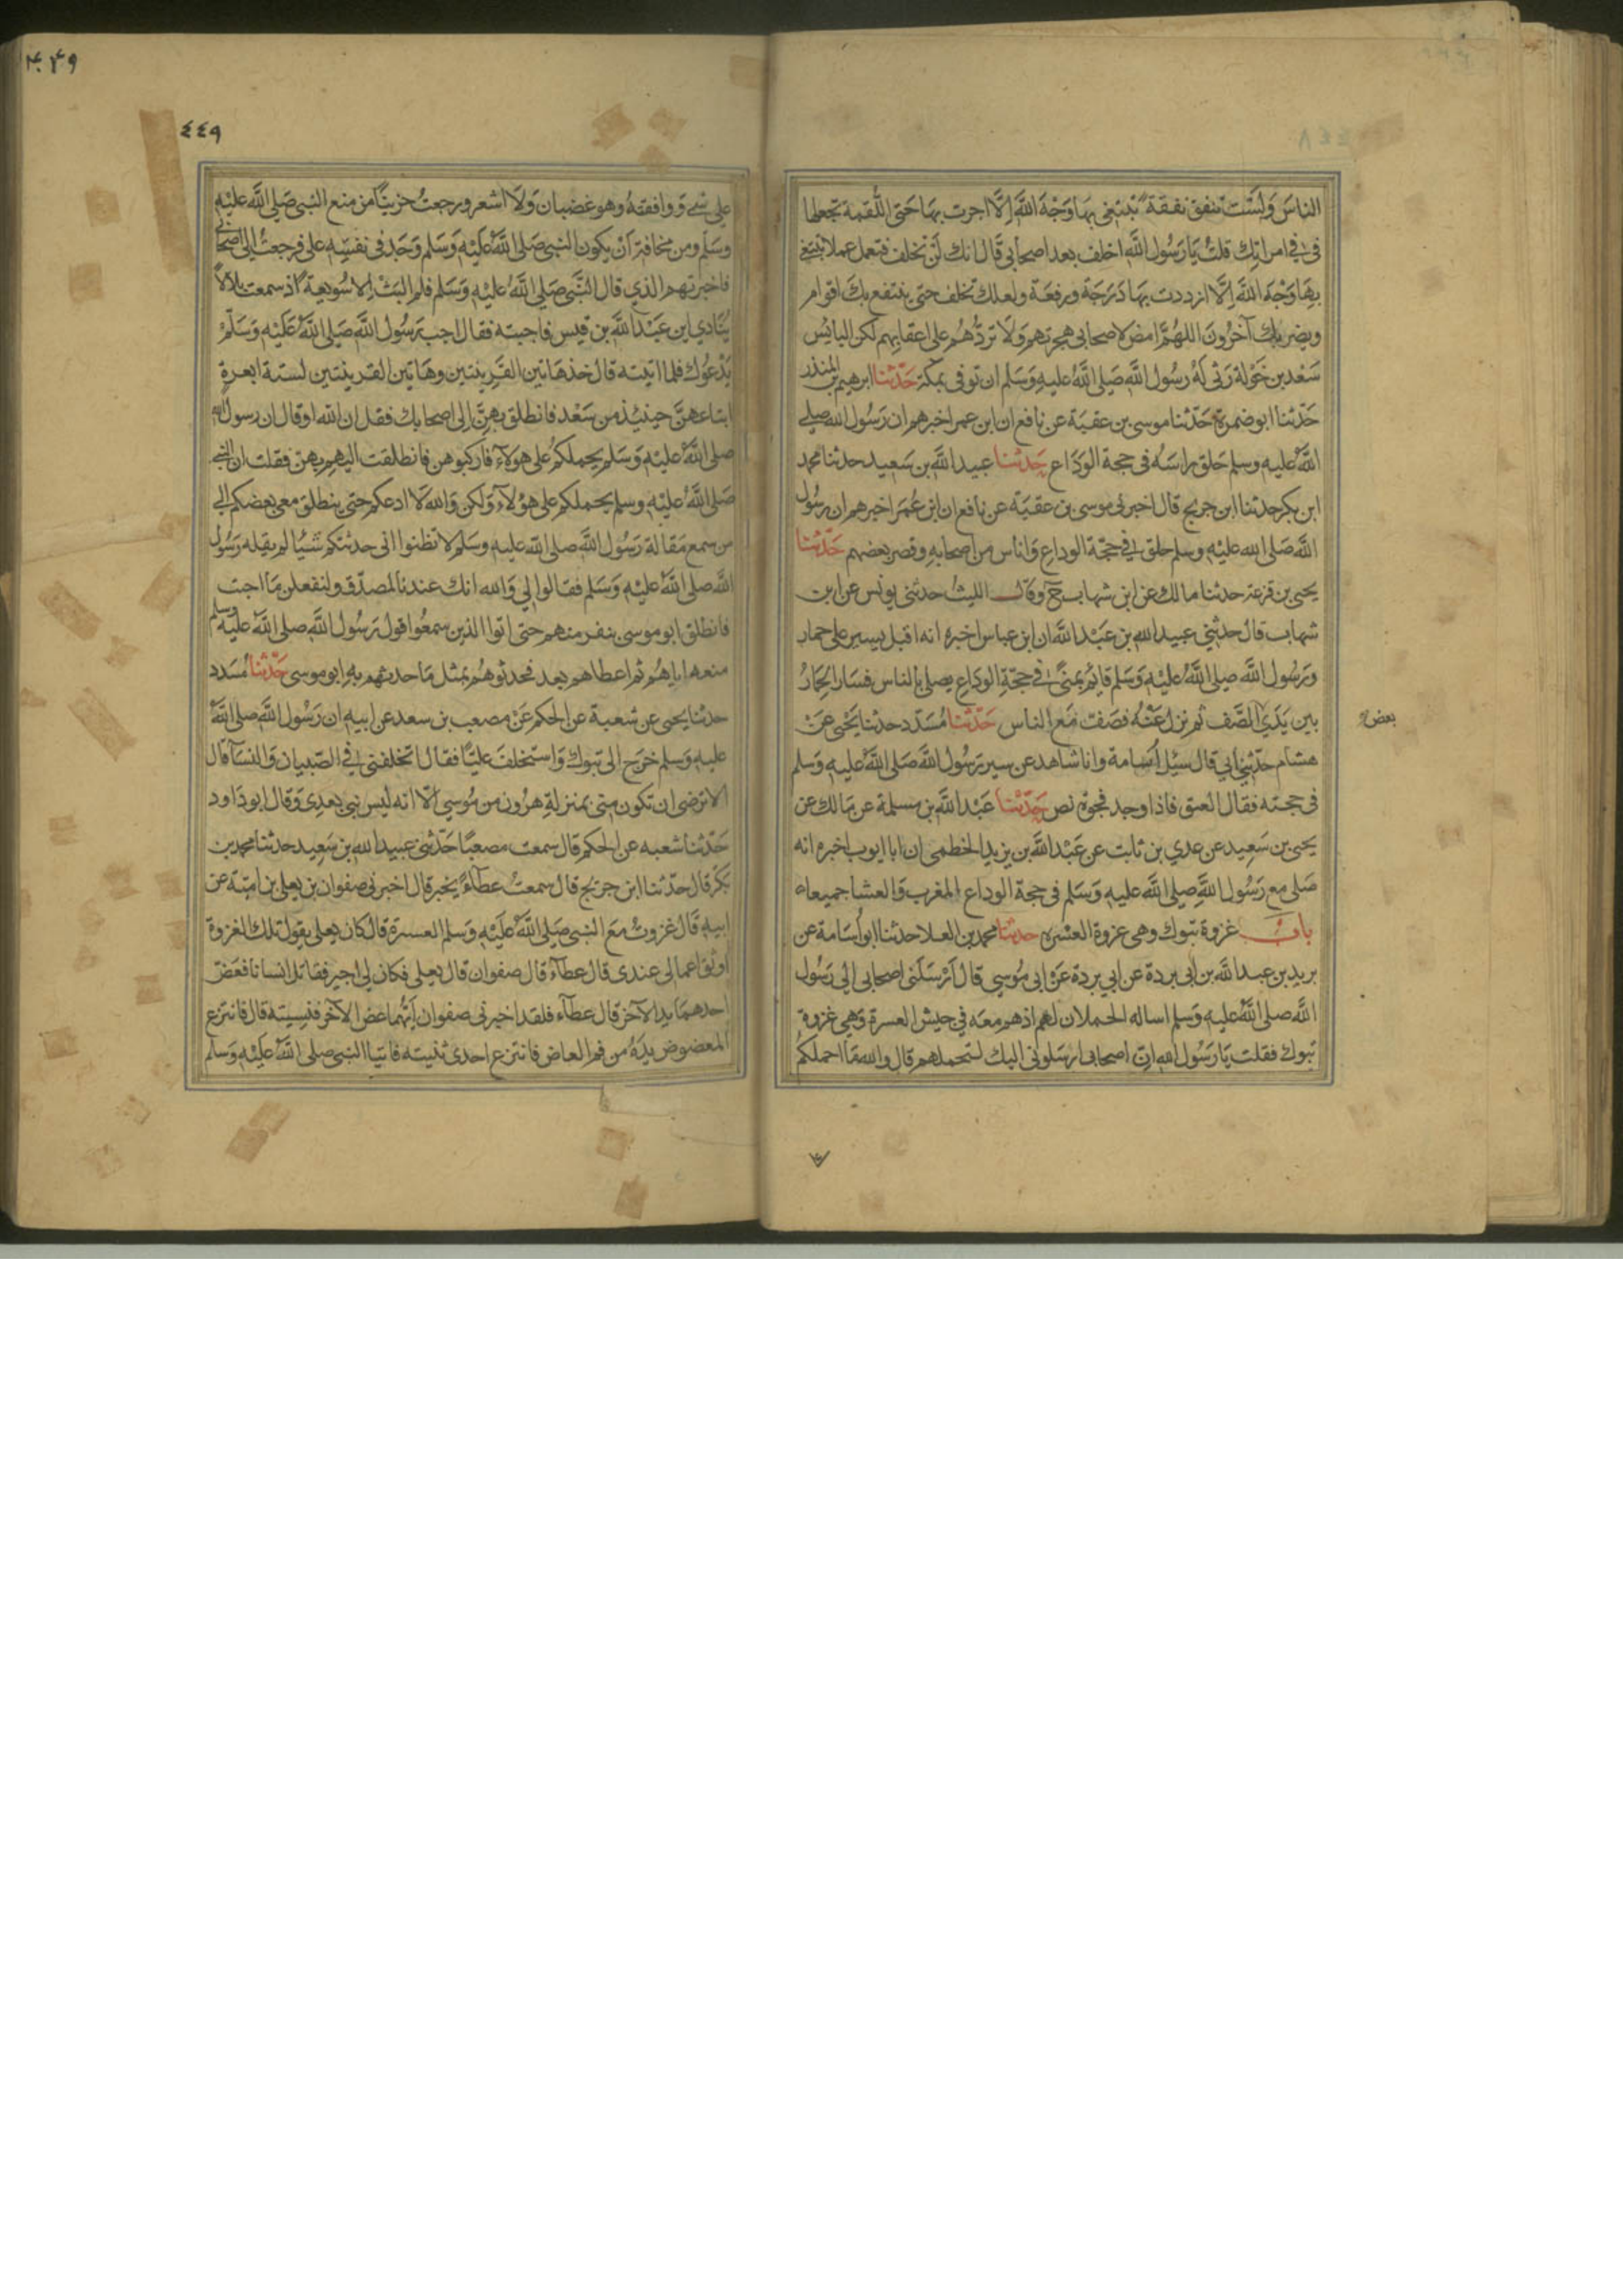 الناسَ وَلَسْتَ تنفق نفقة تبتغى بها وَجْهَ اللَّهِ إِلَّا اجرت بها حَتى اللُّقمة تجعلها
فى فى امراتك قلتُ يَا رَسُولَ اللَّهِ اخلف بعد اصحابى قَالَ انك لَنْ تخلف فتعمل عملا تبتغى
بِهَا وَجْهَ اللَّهِ إِلَّا ازددت بها دَرَجَة ورفعَة ولعلك تخلف حتى ينتفع بكَ اقوام
ويضر بك آخرُونَ اللهُمَّ امض لاصحابى هجرتهم وَلَا تردَّهُمْ على اعقابهم لكن البائس
سَعْد بن خَوْلة رَثى لَهُ رسُول اللَّهِ صَلى اللَّهُ عليهِ وَسَلم ان توفى بمكة حَدّثنا ابرهيم بن المنذر
حَدّثنا ابو ضمرة حَدّثنا موسى بن عقبَة عن نافع ان ابن عمر اخبرهم ان رَسُول الله صلى
اللَّهُ عليهِ وسلم حَلق راسَه فى حجة الوَدَاع حَدثنا عبيد اللَّهِ بن سَعِيد حدثنا محمد
ابن بكر حدثنا ابن جريج قال اخبرنى موسى بن عقبَة عن نافع ان ابن عُمَر اخبرهم ان رسُول
اللَّهِ صَلى الله عليْهِ وسلم حلق فى حجّة الوداعِ وَاناس من اصحابهِ وقصر بعضهم حَدّثنا
يحيى بن قزعة حدثنا مالك عن ابن شهاب ح وقال الليثُ حدثنى يونس عن ابن
شهاب قال حدثنى عبيد الله بن عَبْد اللَّهِ ان ابن عباس اخبره انه اقبل يسير على حمار
وَرَسُول اللَّهِ صلى اللَّهُ عليْهِ وَسَلم قائِم بمنىً فى حجّةِ الوداعِ يصلى بالناس فسَار الحِمَارُ
بين يَدَي الصَّف ثم نزل عَنْهُ فصَفت مَع الناس حَدّثنا مُسَدّد حدثنا يَحْيى عَنْ
بعض
هشام حدّثنى أبى قال سئل أسَامة وانا شاهد عن سير رَسُول اللَّهِ صَلى اللَّهُ عليهِ وَسَلم
فى حجته فقال العنق فاذا وجد فجوة نص حَدّثنا عَبْد اللَّهِ بن مسلمة عن مَالك عن
يحيى بن سَعِيد عن عدي بن ثابت عن عَبْد اللَّهِ بن يزيد الخطمى ان ابا ايوب اخبره انه
صَلى مع رَسُول اللَّهِ صلى اللَّهُ عليهِ وَسَلم فى حجة الوداع المغرب وَالعشا جميعا
باب غزوة تبوك وهى غزوة العسْره حدثنا محمد بن العلا حدثنا ابو أسَامة عن
بريد بن عبد اللَّهِ بن ابى بردة عن ابي بردة عَنْ ابى مُوسي قال أرْسَلَنى اصحابى الى رَسُول
اللَّهِ صلى اللَّهُ عليهِ وَسَلم اساله الحملان لهم اذ هم معَه في جيش العسرة وَهى غزوة
تبوك فقلت يَا رَسُول الله انّ اصحابى ارسَلونى اليك لتحملهم قال والله مَا احملكُمْ
٤٤٩
على شئ ووافقتهُ وهو غضبان وَلَا اشعر ورجعتُ حزينًا من منع النبى صَلى اللَّهُ عليْهِ
وسَلم ومن مخافة أنْ يكون النبى صَلى اللَّهُ عَليْهِ وَسَلم وَجَد فى نفسِه على فرجعتُ الى اصحابى
فاخبرتهم الذي قال النَّبى صَلى اللَّهُ عليْهِ وَسَلم فلم البَثْ إلا سُويعةً اذ سمعت بلالاً
يُنَادي ابن عَبْد اللَّه بن قيس فاجبته فقال اجب رَسُول اللَّهِ صَلى اللَّهُ عَليْهِ وَسَلّمَ
يَدْعُوك فلما اتيته قال خذ هَاتين القَرِينتين وهَاتين القرينتين لستة ابعرةٍ
ابتاعهنَّ حينئِذ من سَعْد فانطلق بهِنّ إلى اصحابك فقل ان الله او قال ان رسول الله
صلى اللَّهُ عليْهِ وَسَلم يحملكُمْ على هَولاءِ فاركبوهن فانطلقت اليهم بهن فقلت ان النبى
صَلى اللَّهُ عليْهِ وسلم يحملكم على هؤلآءِ وَلكن وَالله لَا ادعكم حتى ينطلق معى بعضكم الى
من سمع مَقالة رَسُول اللَّهِ صلى اللَّه عليهِ وسَلم لا تظنوا انى حدثتكم شيئا لم يقله رَسُول
اللَّهِ صلى اللَّهُ عليْهِ وَسَلم فقالوا لي وَالله انك عندنا لمصدّق ولنفعلن مَا احببت
فانطلق ابو موسى بنفر منهم حتى اتوا الذين سمعُوا قول رَسُول اللَّهِ صلى اللَّهُ عليْهِ وسلم
منعه اياهُمْ ثم اعطاهم بعد فحدثوهُمْ بمثل مَا حدثهم بهِ ابو موسى حَدّثنا مُسَدد
حدثنا يحيى عن شعبة عن الحكم عَنْ مصعب بن سعد عن ابيهِ ان رَسُول اللَّهِ صلى اللَّهُ
عليهِ وَسَلم خرَج الى تبوك وَاستخلفَ عليًّا فقال اتخلفنى فى الصّبيان وَالنسآ قال
الا ترضى ان تكون منى بمنزلةِ هرُون من مُوسي الّا انه ليس نبى بعدِى وَقال ابو دَاود
حَدّثنا شعبه عن الحكم قال سمعت مصعبًا حَدّثنى عبيد الله بن سَعِيد حدثنا محمد بن
بَكر قال حدّثنا ابن جريج قال سمعتُ عطآءً يخبر قال اخبرنى صفوان بن يعلى بن امية عن
ابيهِ قَالَ غزوتُ مَعَ النبى صَلى اللَّهُ عَليْهِ وَسَلم العسرة قال كان يعلى يقول تلك الغزوة
اوثق اعمالى عندى قال عطآء قال صفوان قال يعلى فكان لى اجير فقاتل انسانا فعَضّ
احدهمَا يد الآخر قال عطآء فلقد اخبرنى صفوان أيّهُما عض الآخر فنسِيته قال فانتزع
المعضوض يدَهُ من فم العاض فانتزع احدى ثنيته فاتيا النبى صلى اللَّهُ عَليْهِ وَسَلم